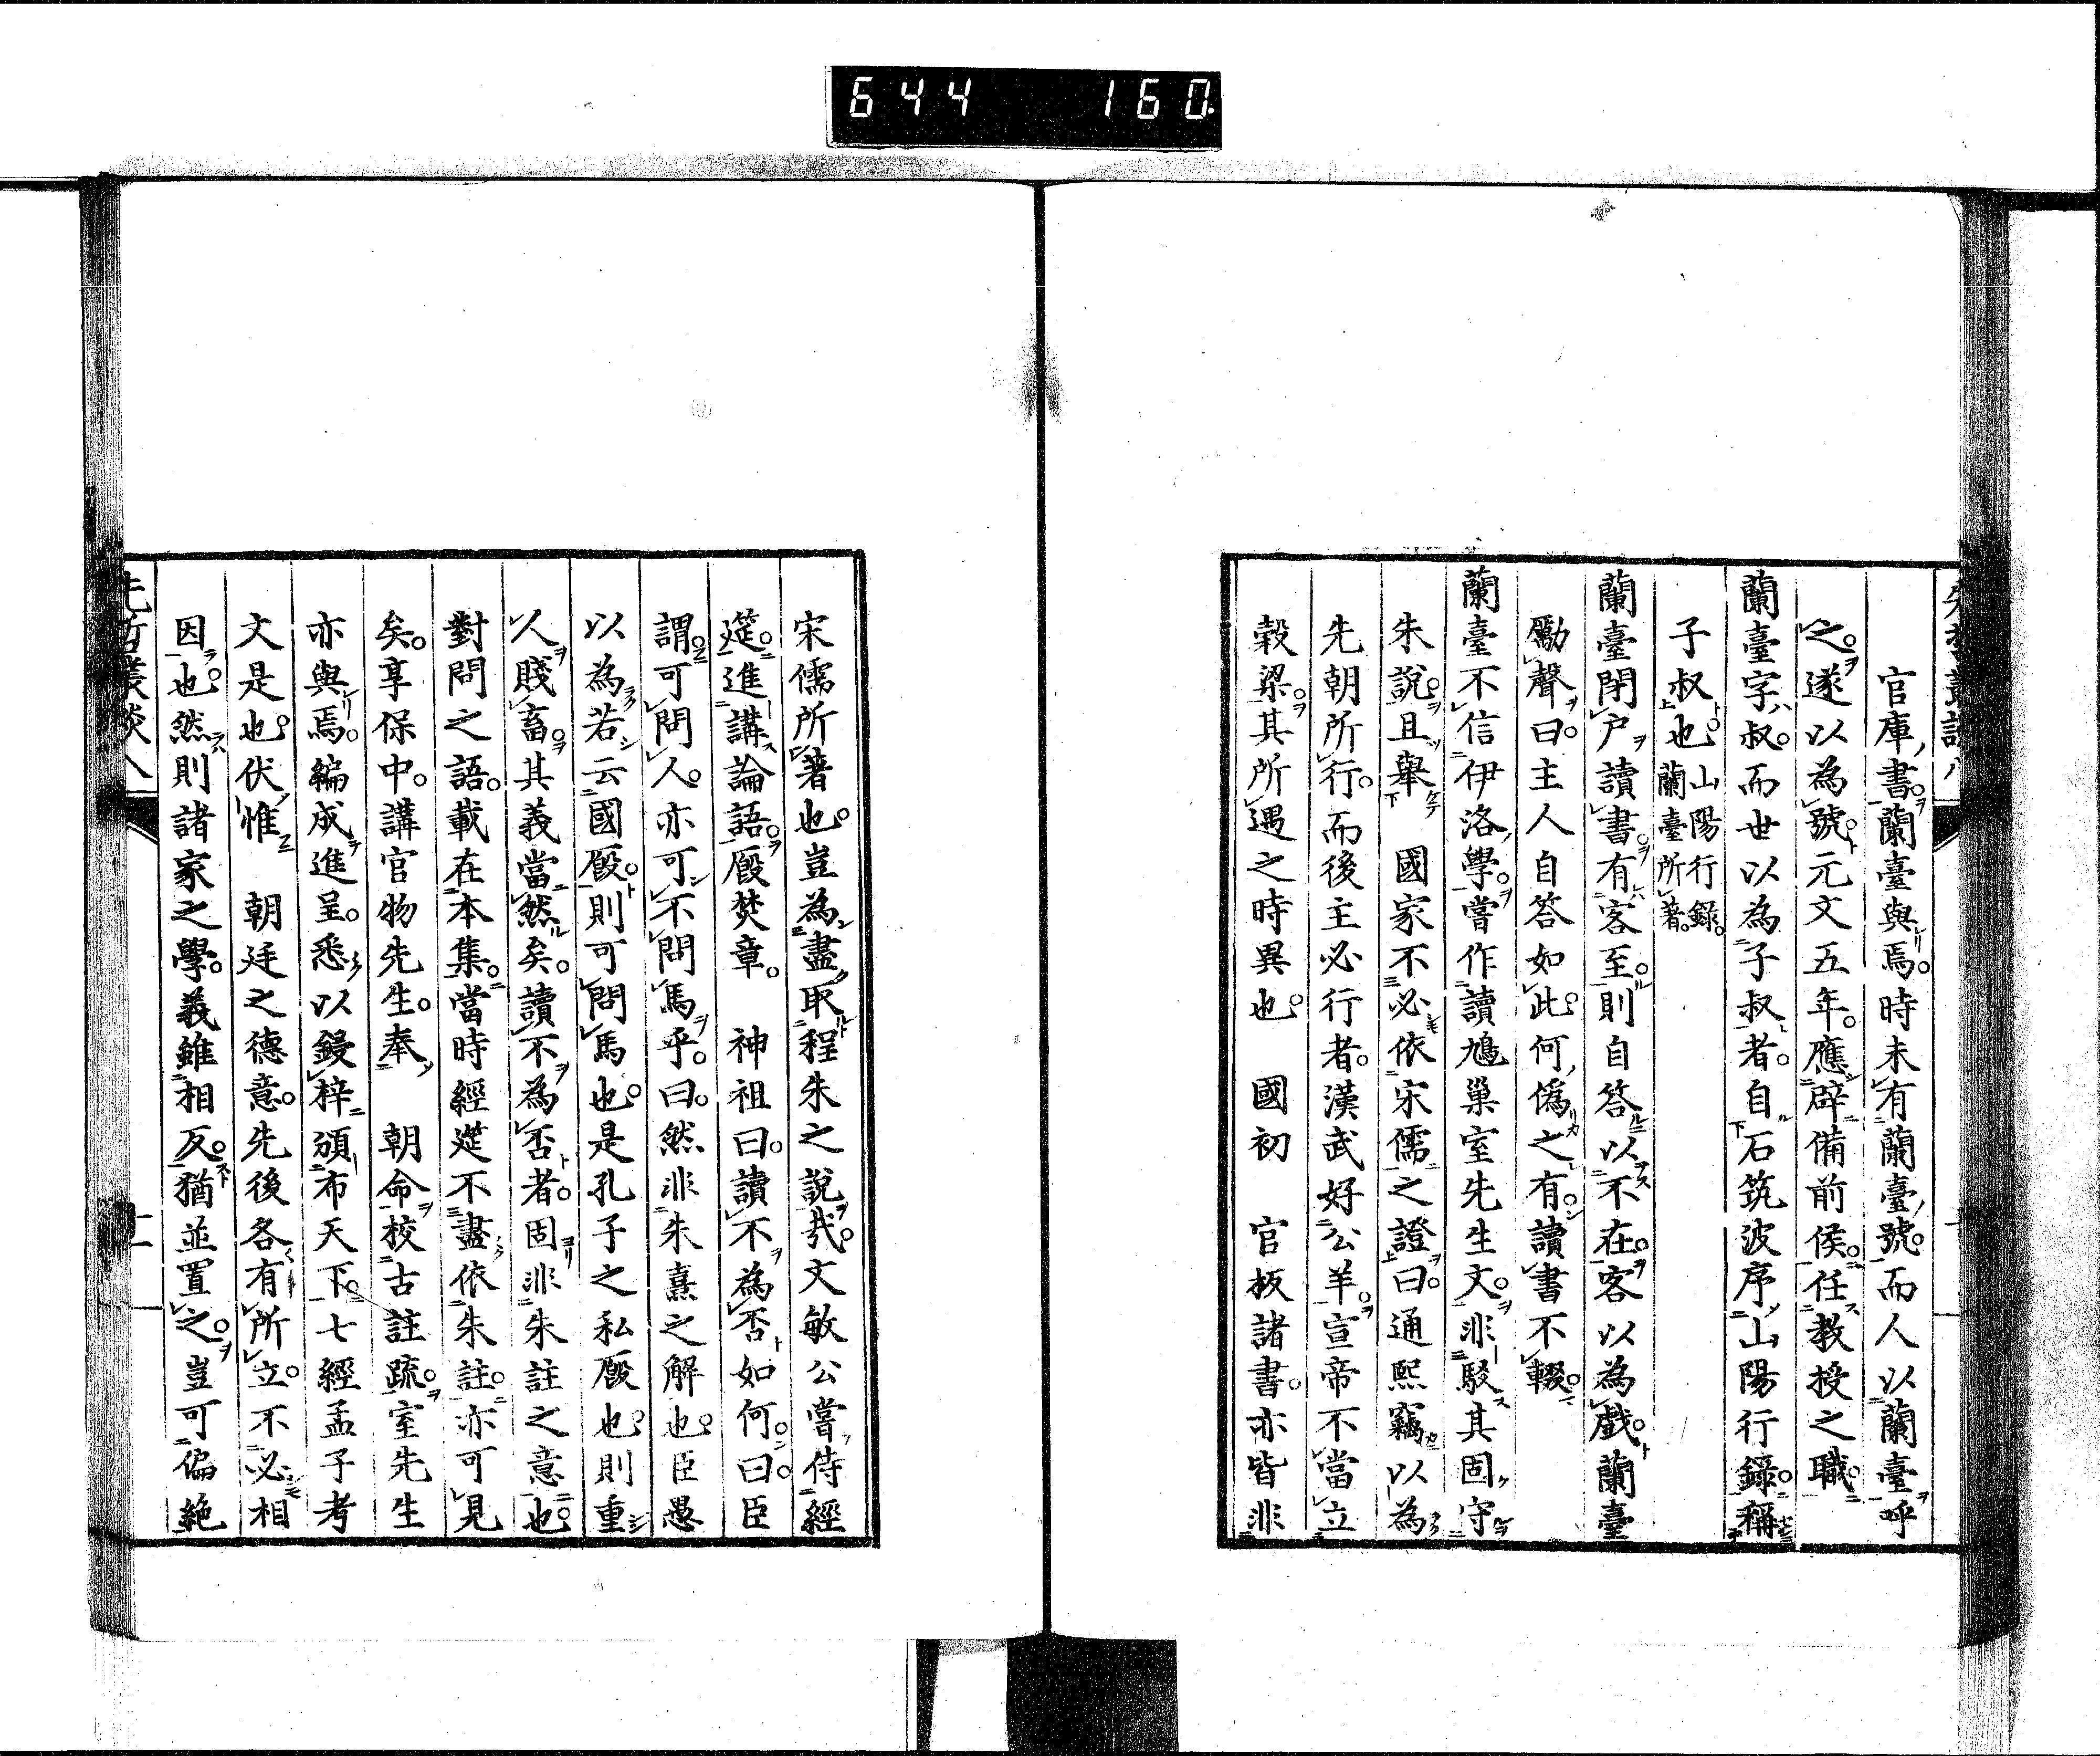 644 160
官庫書。蘭臺與焉。時未有蘭臺號。而人以蘭臺呼
之。遂以為號。元文五年。應辟備前侯。任教授之職。
蘭臺字叔。而世以為子叔者。自石筑波序山陽行錄。稱
子叔也。山陽行錄。蘭臺所著。
蘭臺閉户讀書。有客至。則自答以不在。客以為戲。蘭臺
勵聲曰。主人自答如此。何偽之有。讀書不輟。
蘭臺不信伊洛學。嘗作讀鳩巢室先生文。非駁其固守
朱說。且舉 國家不必依宋儒之證曰。通熙竊以為
先朝所行。而後主必行者。漢武好公羊。宣帝不當立
穀梁。其所遇之時異也。 國初 官板諸書。亦皆非
宋儒所著也。豈為盡取程朱之說哉。文敏公嘗侍經
筵。進講論語。廄焚章。 神祖曰。讀不為否如何。曰。臣
謂可問人。亦可不問馬乎。曰。然非朱熹之解也。臣愚
以為若云國廄。則可問馬也。是孔子之私廄也。則重
人賤畜。其義當然矣。讀不為否者。固非朱註之意也。
對問之語。載在本集。當時經筵不盡依朱註。亦可見
矣。享保中。講官物先生。奉 朝命校古註疏。室先生
亦與焉。編成進呈。悉以鋟梓頒布天下。七經孟子考
文是也。伏惟 朝廷之德意。先後各有所立。不必相
因也。然則諸家之學。義雖相反。猶並置之。豈可偏絶
先哲叢談八